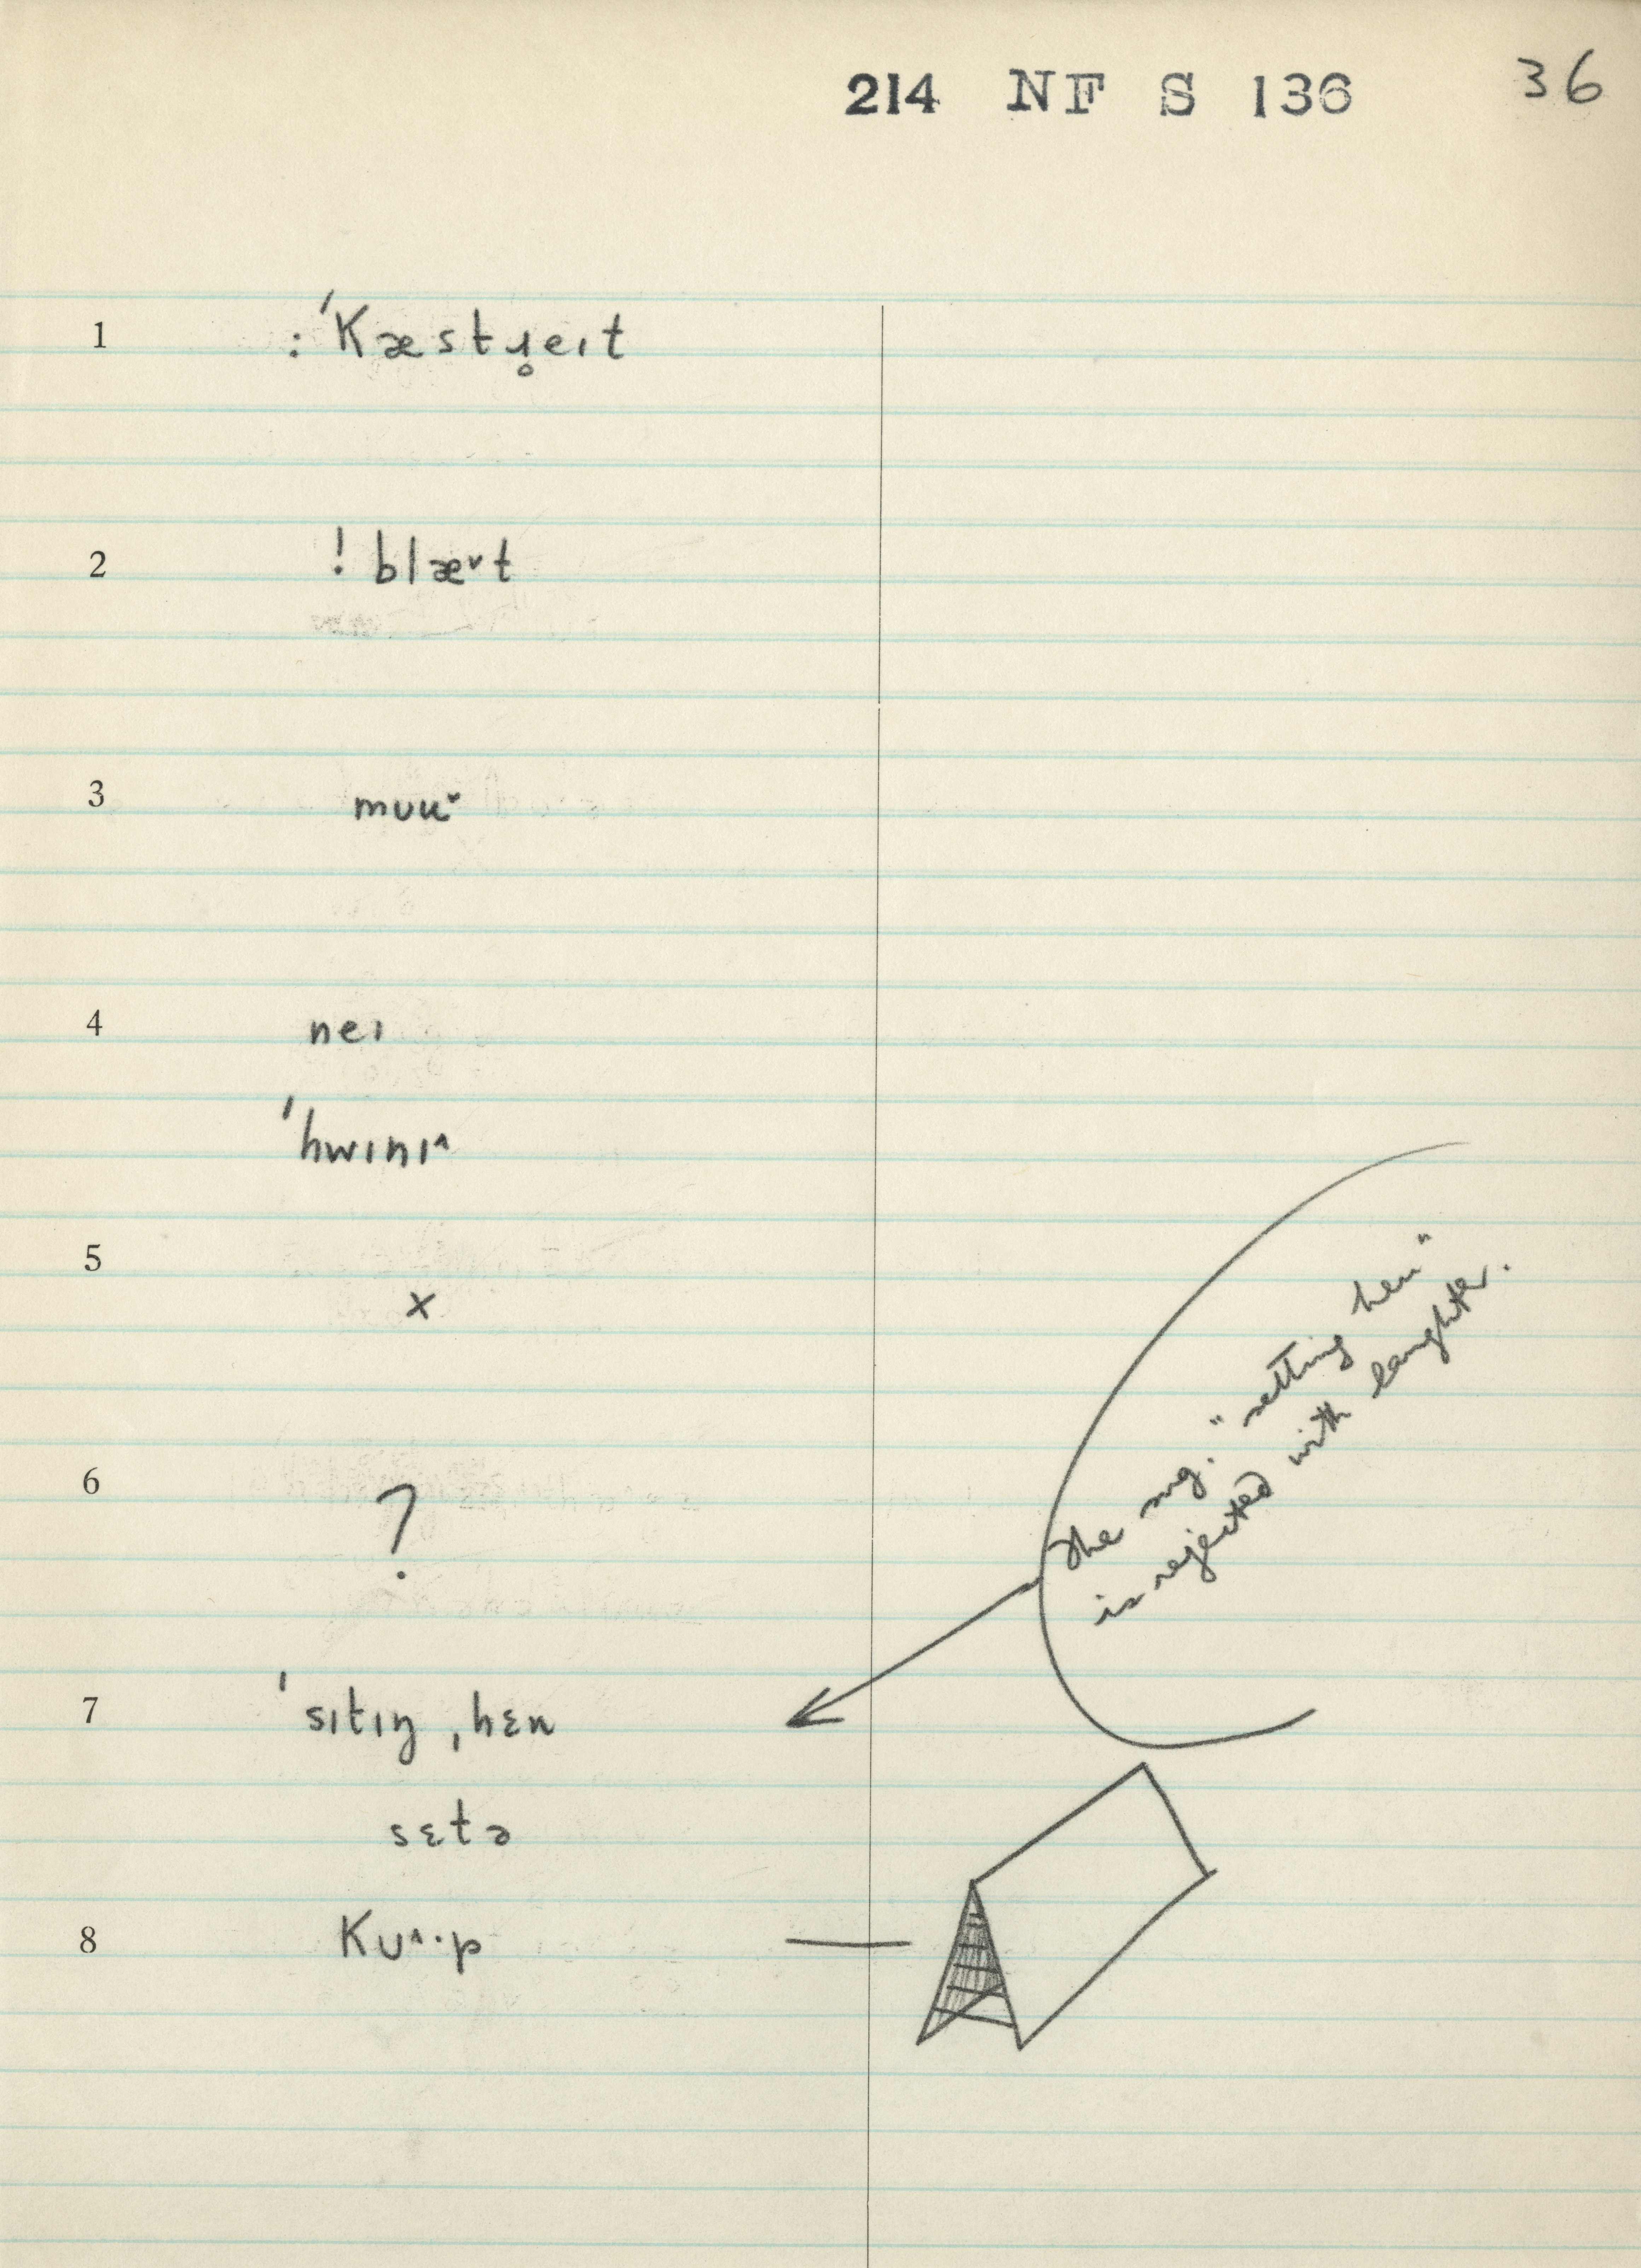 214 NF S 136 36
1 : ˈKæstɹ̥eɪt
2 ! blæ˅t
3 mʊu˅
4 neɪ
ˈhwɪnɪ^
5 x
6 ?
The sug. "setting hen"
is rejected with laughter.
7 ˈsɪtɪŋ ˌhɛn
sɛtə
8 Kʊ^·p